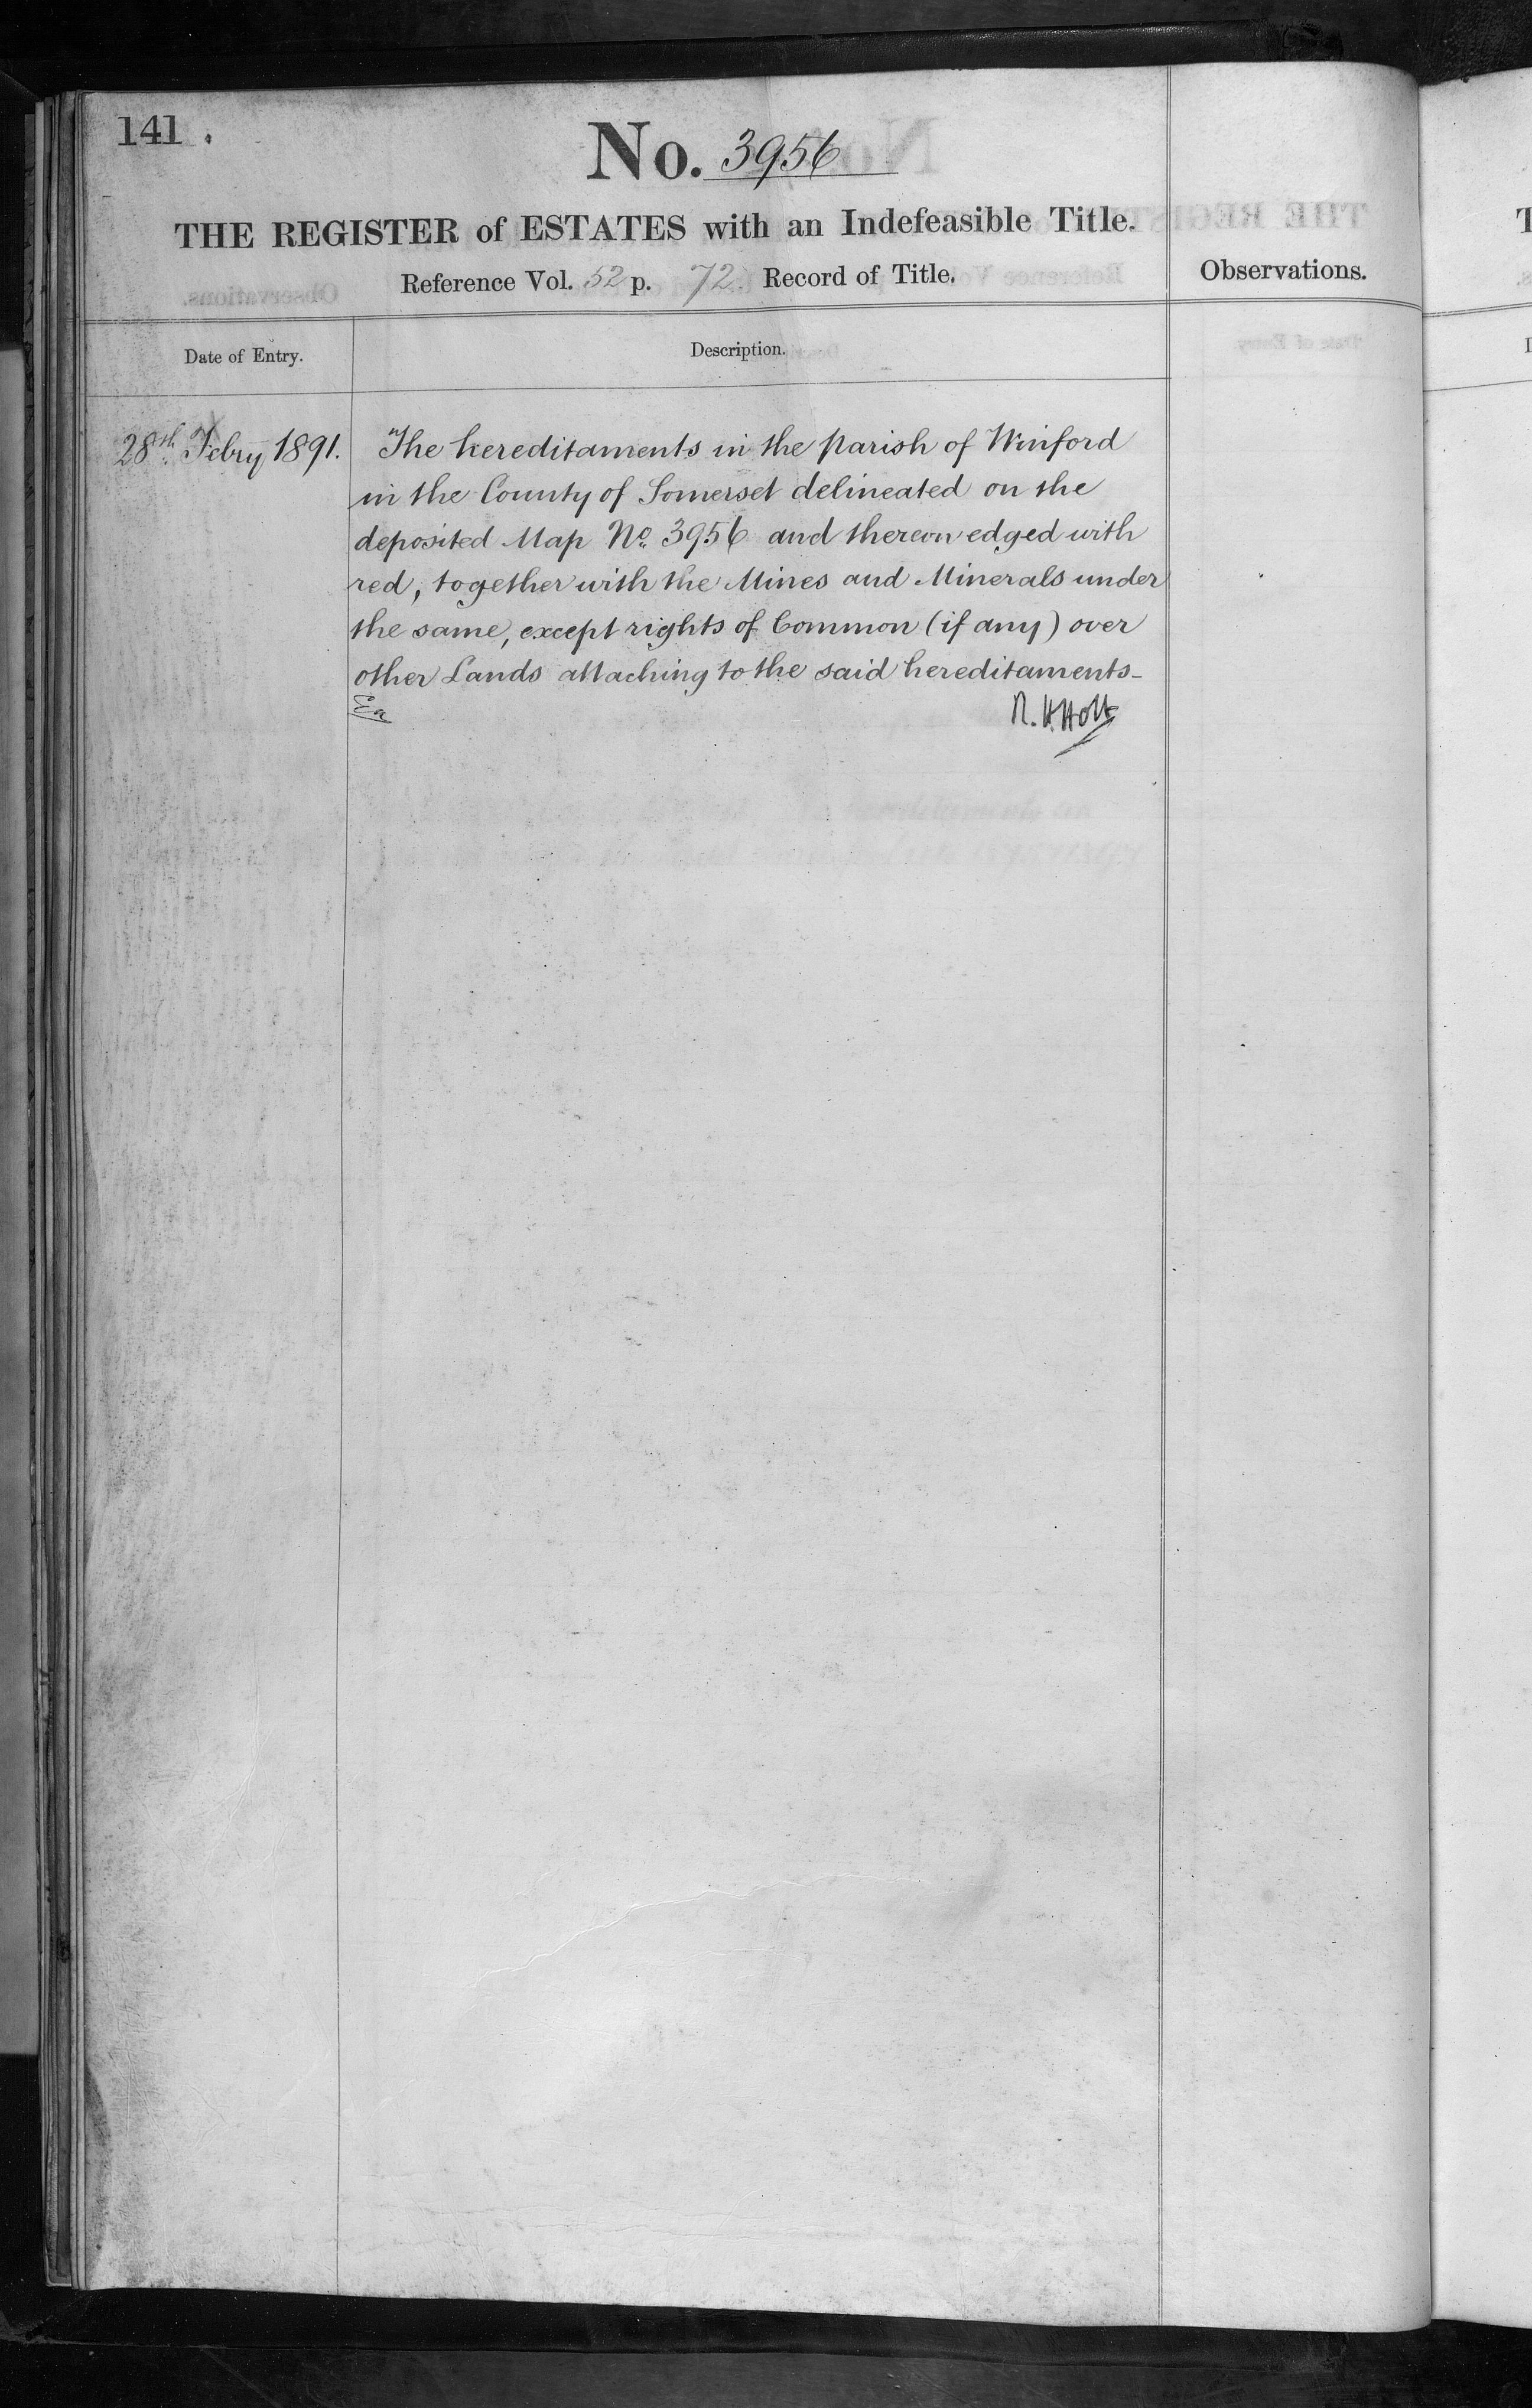 141.
No. 3956
THE REGISTER of ESTATES with an Indefeasible Title.
Reference Vol. 52 p. 72 Record of Title.
Observations.
Date of Entry.
Description.
28th Febry 1891.
The hereditaments in the Parish of Winford
in the County of Somerset delineated on the
deposited Map No. 3956 and thereon edged with
red, together with the Mines and Minerals under
the same, except rights of Common (if any) over
other Lands attaching to the said hereditaments-
R. H. Holt